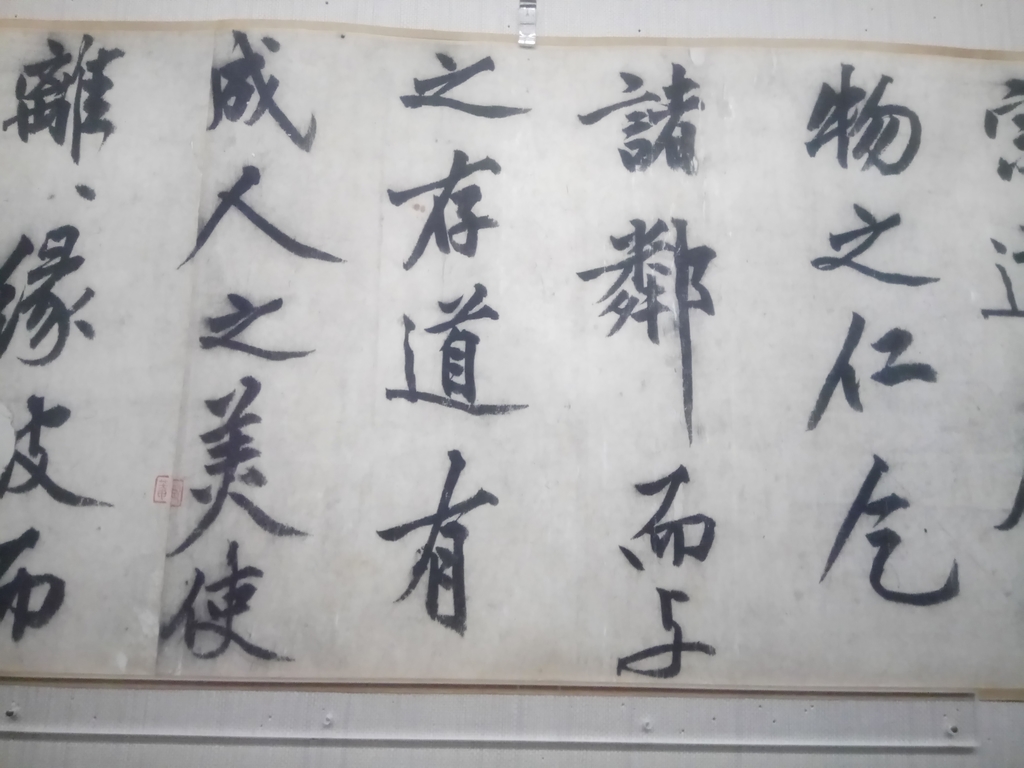 物之仁乞
諸鄰而与
之存道有
成人之美使
離、緣皮而